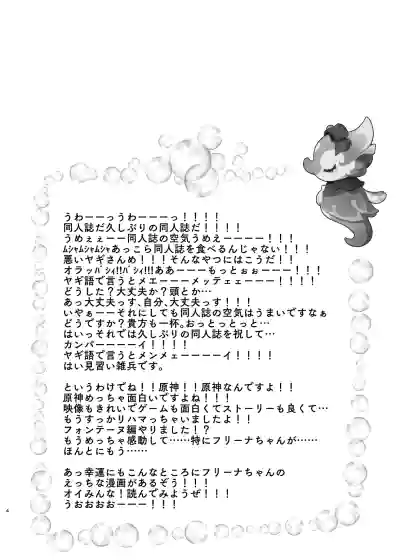 うわーーっうわーーーっ！！！！
同人誌だ久しぶりの同人誌だ！！！！
うめぇぇーー同人誌の空気うめえーーーー！！！
ﾑｼｬﾑｼｬﾑｼｬあっこら同人誌を食べるんじゃない！！！
悪いヤギさんめ！！！そんなやつにはこうだ！！
オラッﾊﾞｼｨ!!ﾊﾞｼｨ!!!ああーーーもっとぉぉーーー！！！
ヤギ語で言うとメエーーーメッテェェーーー！！！！
どうした？大丈夫か？頭とか…
あっ大丈夫っす、自分、大丈夫っす！！！
いやぁーーそれにしても同人誌の空気はうまいですなぁ
どうですか？貴方も一杯。おっとっとっと…
はいっそれでは久しぶりの同人誌を祝して…
カンパーーーーイ！！！！
ヤギ語で言うとメンメェーーーーイ！！！！
はい見習い雑兵です。
というわけでね！！原神！！原神なんですよ！！
原神めっちゃ面白いですよね！！！
映像もきれいでゲームも面白くてストーリーも良くて…
もうすっかりハマっちゃいましたよ！！
フォンテーヌ編やりました！？
もうめっちゃ感動して……特にフリーナちゃんが……
ほんとにもう……
あっ幸運にもこんなところにフリーナちゃんの
えっちな漫画があるぞう！！！
オイみんな！読んでみようぜ！！！
うおおおおーーー！！！
4